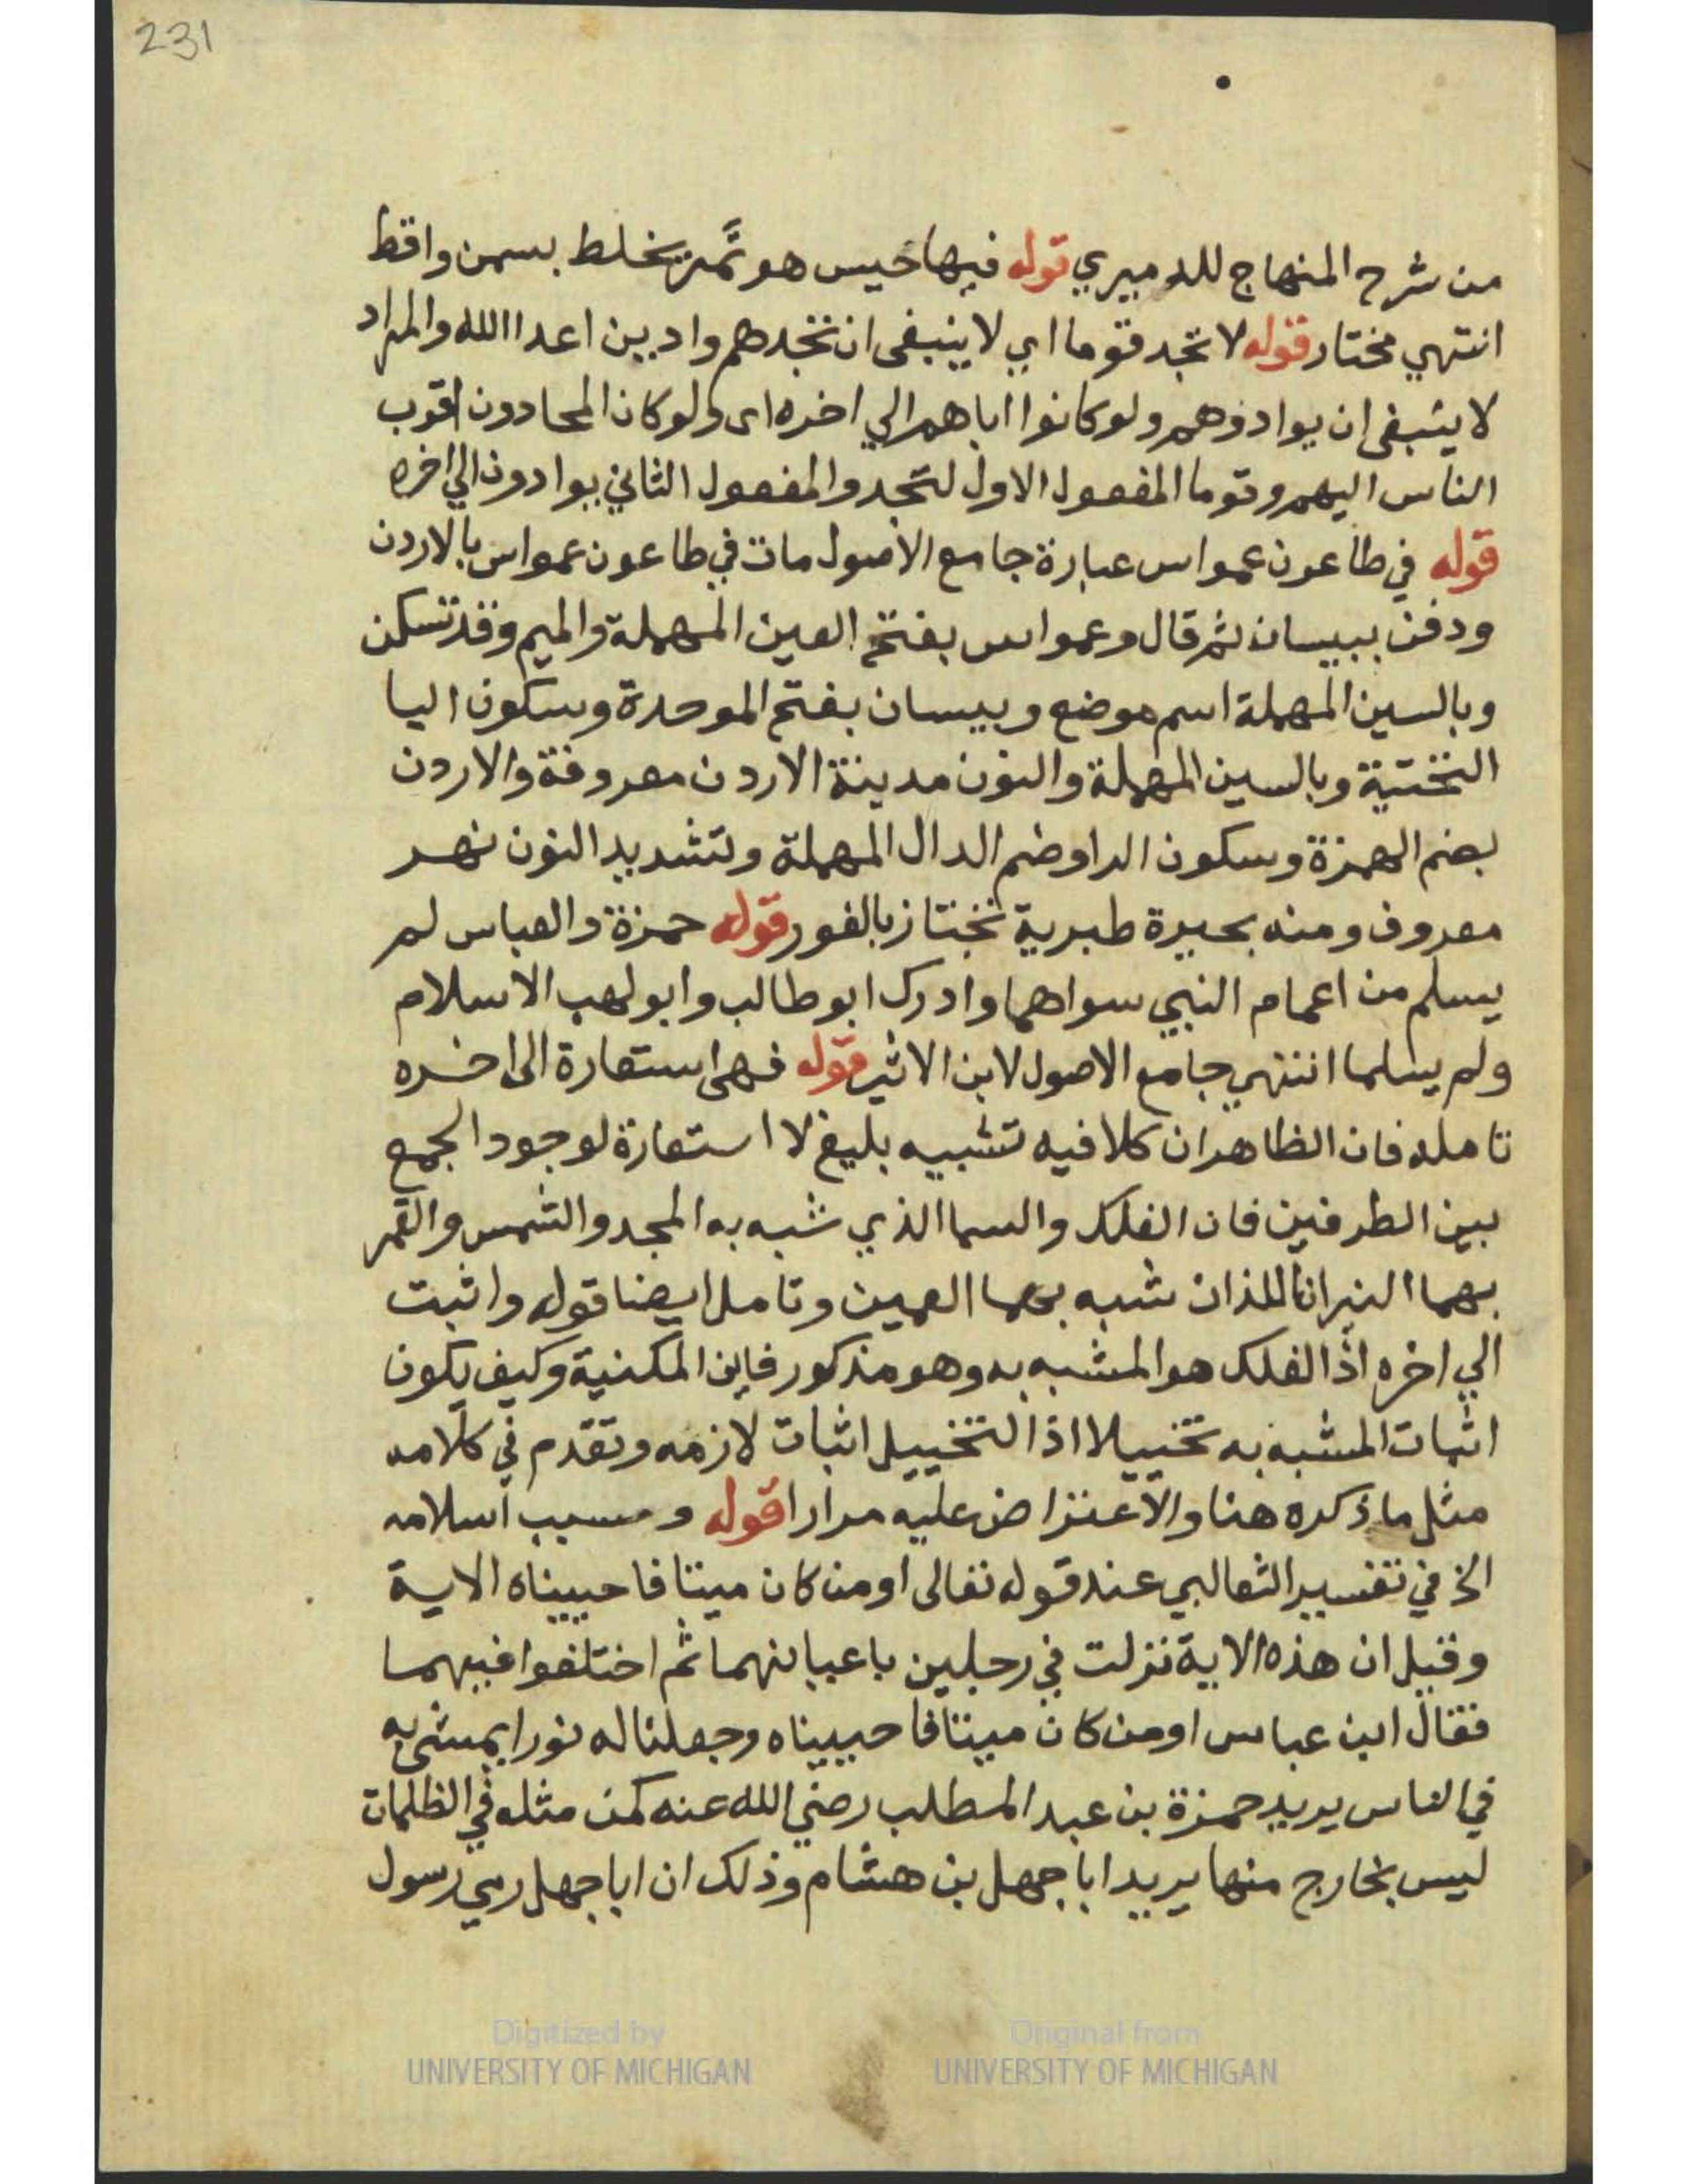 231
من شرح المنهاج للدميري قوله فيها حيس هو تمر يخلط بسمن واقط
انتهي مختار قوله لا تجد قوما اي لا ينبغى ان تجدهم وادين اعدا الله والمراد
لا ينبغى ان يوادوهم ولو كانوا اباهم الي اخره اى ولو كان المحادون اقرب
الناس اليهم وقوما المفعول الاول لتجد والمفعول الثاني يوادون الي اخره
قوله في طاعون عمواس عبارة جامع الاصول مات في طاعون عمواس بالاردن
ودفن ببيسان ثم قال وعمواس بفتح العين المهملة والميم وقد تسكن
وبالسين المهملة اسم موضع وبيسان بفتح الموحدة وسكون اليا
التحتية وبالسين المهملة والنون مدينة الاردن معروفة والاردن
بضم الهمزة وسكون الرا وضم الدال المهملة وتشديد النون نهر
معروف ومنه بحيرة طبرية تجتاز بالغور قوله حمزة والعباس لم
يسلم من اعمام النبي سواهما وادرك ابو طالب وابو لهب الاسلام
ولم يسلما انتهي جامع الاصول لابن الاثير قوله فهى استعارة الى اخره
تامله فان الظاهر ان كلا فيه تشبيه بليغ لا استعارة لوجود الجمع
بين الطرفين فان الفلك والسما الذي شبه به المجد والشمس والقمر
بهما النيران اللذان شبه بهما العمين وتامل ايضا قوله واثبت
الي اخره اذ الفلك هو المشبه به وهو مذكور فاين المكنية وكيف يكون
اثبات المشبه به تخييلا اذ التخييل اثبات لازمه وتقدم في كلامه
مثل ما ذكره هنا والاعتراض عليه مرارا قوله وسبب اسلامه
الخ في تفسير الثعالبي عند قوله تعالى اومن كان ميتا فاحييناه الاية
وقيل ان هذه الاية نزلت في رجلين باعيانهما ثم اختلفوا فيهما
فقال ابن عباس اومن كان ميتا فاحييناه وجعلنا له نورا يمشى به
في الناس يريد حمزة بن عبد المطلب رضي الله عنه كمن مثله في الظلمات
ليس بخارج منها يريد ابا جهل بن هشام وذلك ان ابا جهل رمي رسول
Digitized by
UNIVERSITY OF MICHIGAN
Original from
UNIVERSITY OF MICHIGAN